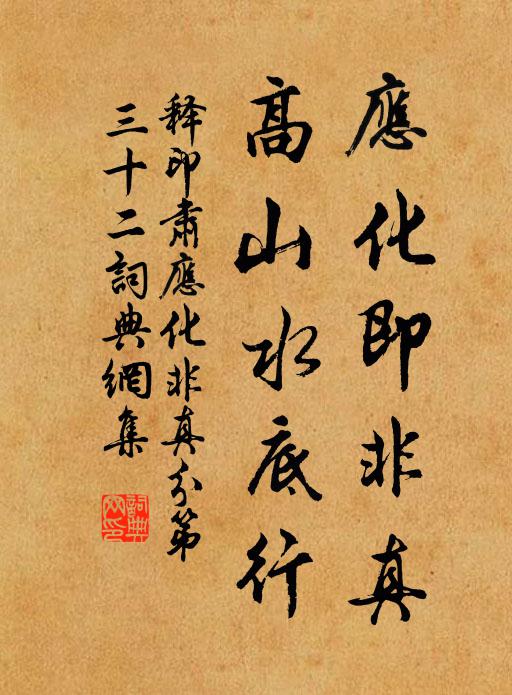 應化即非真
高山水底行
释印肅應化非真分第
三十二詞典網集
詞典
网印